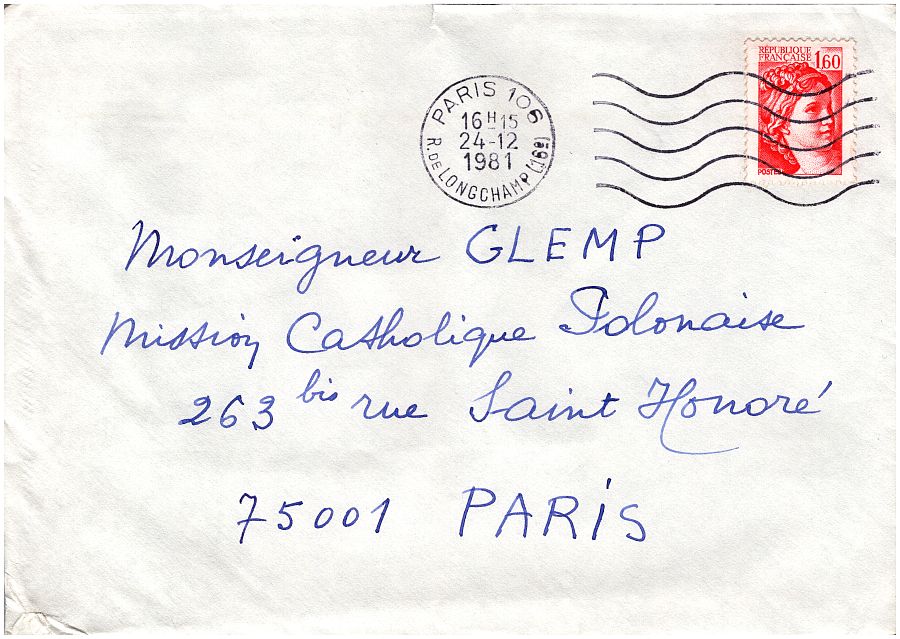 RÉPUBLIQUE
FRANÇAISE 1,60
POSTES
PARIS 106
16H15
24-12
1981
R. DE LONGCHAMP (16e)
Monseigneur GLEMP
Mission Catholique Polonaise
263 bis rue Saint Honoré
75001 PARIS